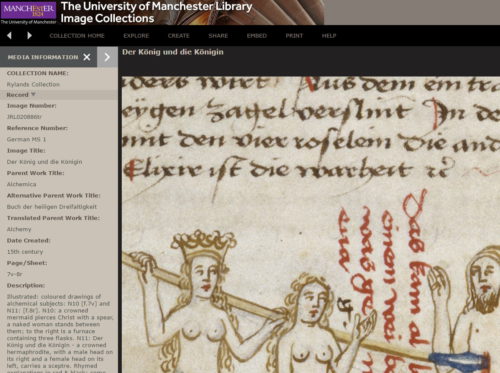 MANCHESTER
1824
The University of Manchester
The University of Manchester Library
Image Collections
COLLECTION HOME
EXPLORE
CREATE
SHARE
EMBED
PRINT
HELP
MEDIA INFORMATION
COLLECTION NAME:
Rylands Collection
Record
Image Number:
JRL020886tr
Reference Number:
German MS 1
Image Title:
Der König und die Königin
Parent Work Title:
Alchemica
Alternative Parent Work Title:
Buch der heiligen Dreifaltigkeit
Translated Parent Work Title:
Alchemy
Date Created:
15th century
Page/Sheet:
7v-8r
Description:
Illustrated: coloured drawings of
alchemical subjects: N10 [f.7v] and
N11: [f.8r]. N10: a crowned
mermaid pierces Christ with a spear,
a naked woman stands between
them; to the right is a furnace
containing three flasks. N11: Der
König und die Königin - a crowned
hermaphrodite, with a male head on
its right and a female head on its
left, carries a sceptre. Rhymed
Der König und die Königin
wirt
eygen zagel verslint
mit den vier roselein die
Elixir ist die warheit